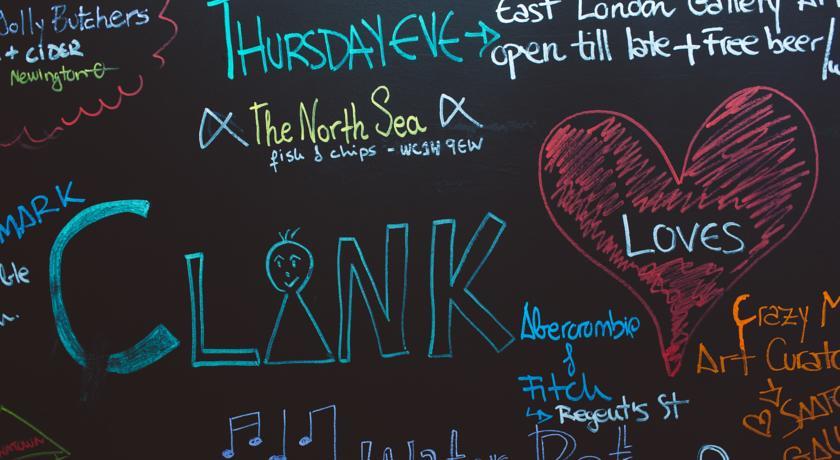 Jolly Butchers
+ CiDER
Newington
THURSDAY EVE → East London Gallery
open till late + Free beer/
The North Sea
fish & chips - WC1H 9EW
MARK
CLANK
LOVES
Abercrombie
&
Fitch
↳ Regent's St
Crazy
Art